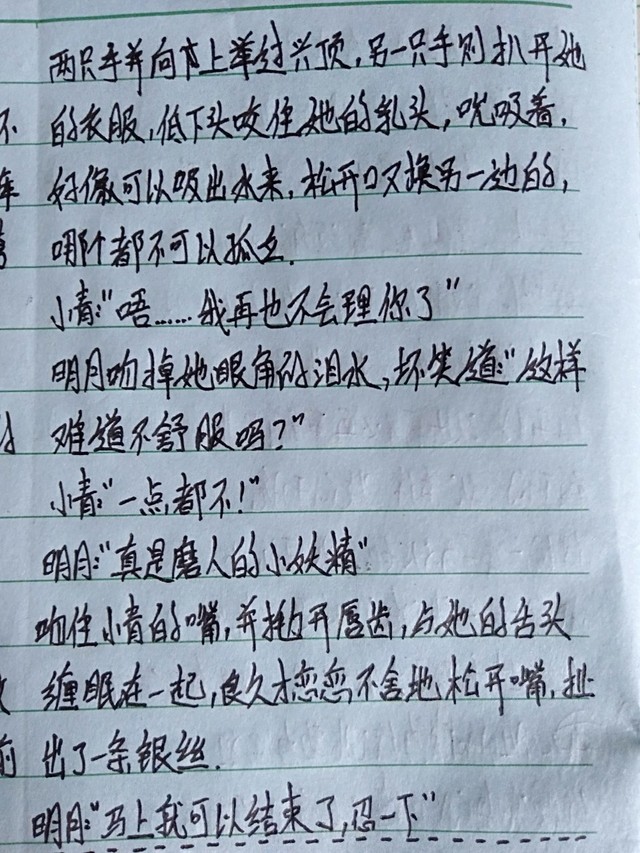 两只手并向上举过头顶，另一只手则扒开她
不 的衣服，低下头咬住她的乳头，吮吸着，
好像可以吸出水来，松开口又换另一边的，
哪个都不可以孤立.
小青："唔……我再也不会理你了"
明月吻掉她眼角的泪水，坏笑道："这样
难道不舒服吗？"
小青："一点都不！"
明月："真是磨人的小妖精"
吻住小青的嘴，并撬开唇齿，与她的舌头
缠眠在一起，良久才恋恋不舍地松开嘴，扯
前 出了一条银丝.
明月："马上就可以结束了，忍一下"